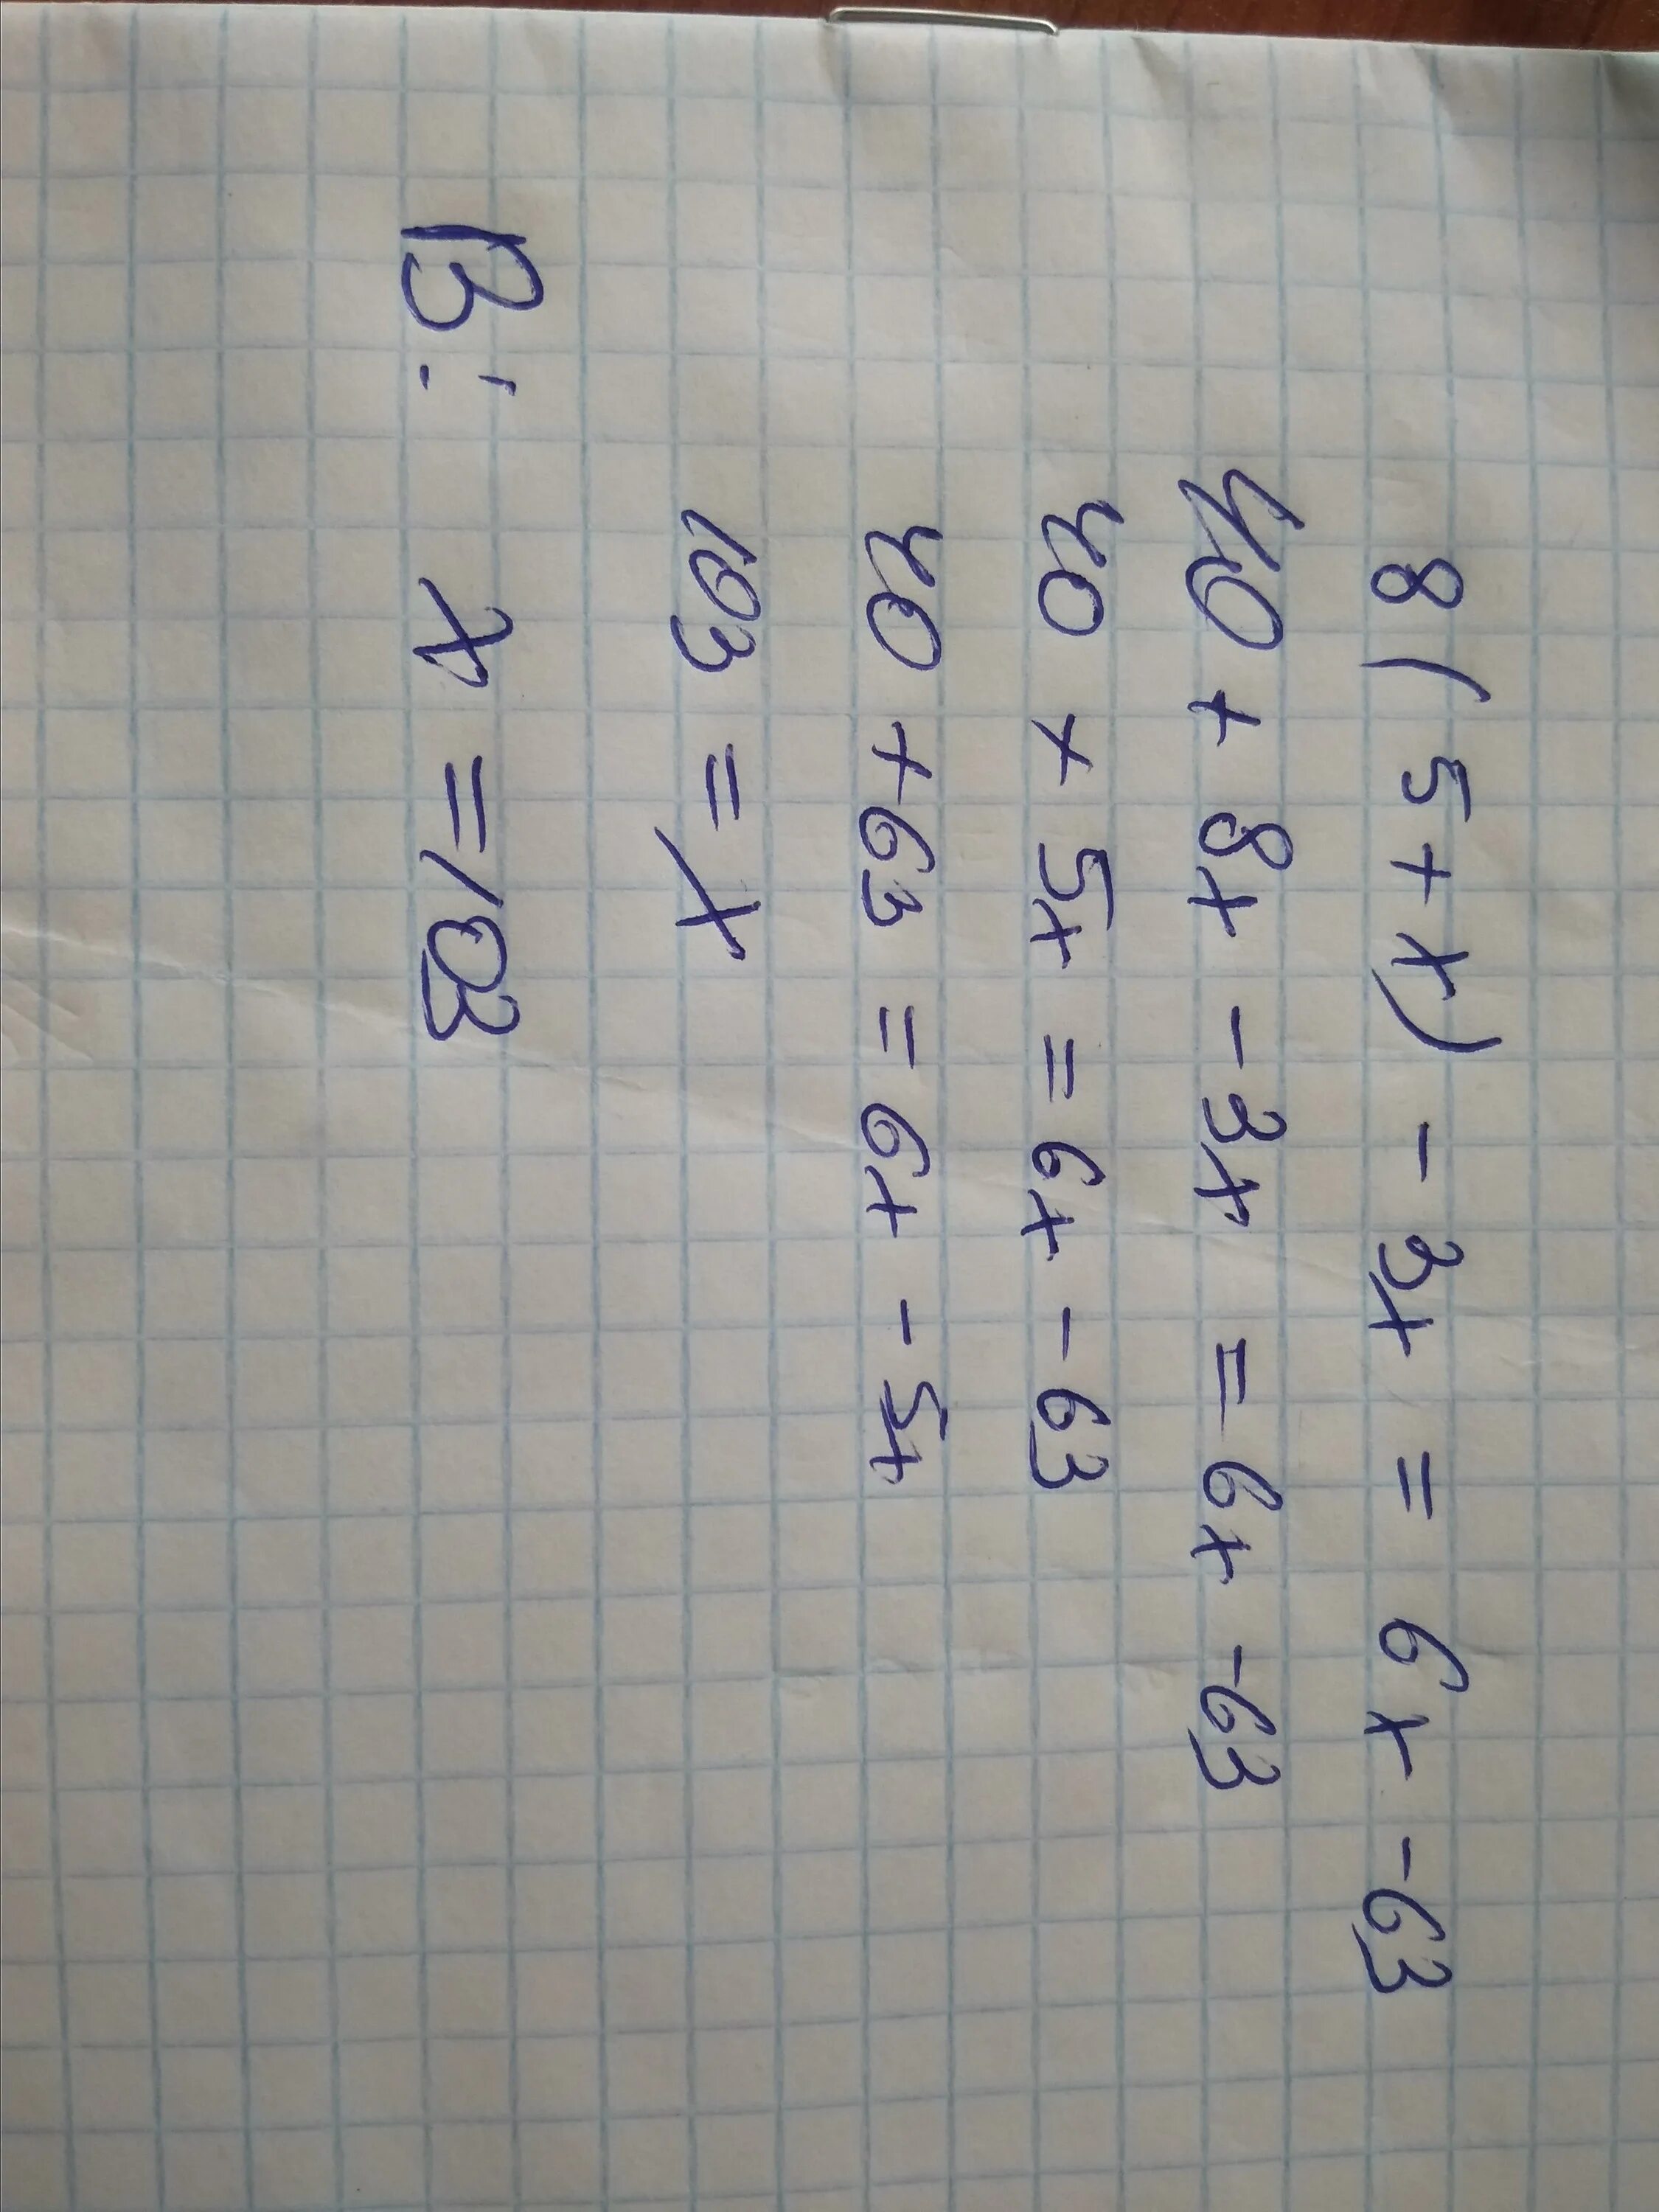 8(5+x) - 3x = 6x - 63
40 + 8x - 3x = 6x - 63
40 + 5x = 6x - 63
40 + 63 = 6x - 5x
103 = x
В: x = 103